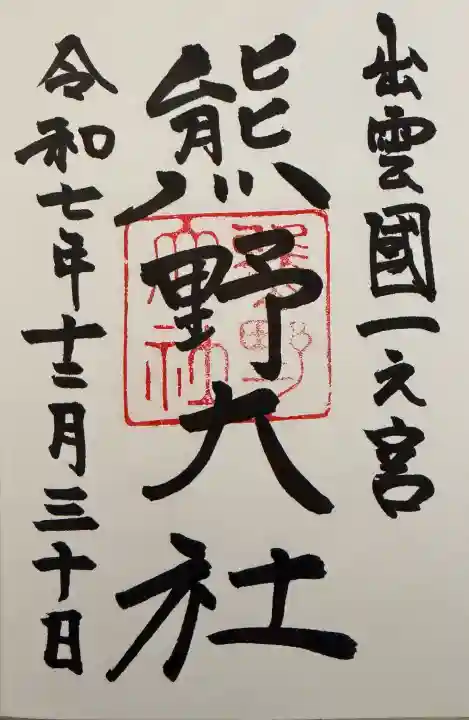 出雲國一之宮
熊野大社
熊野
大社
令和七年十二月三十日